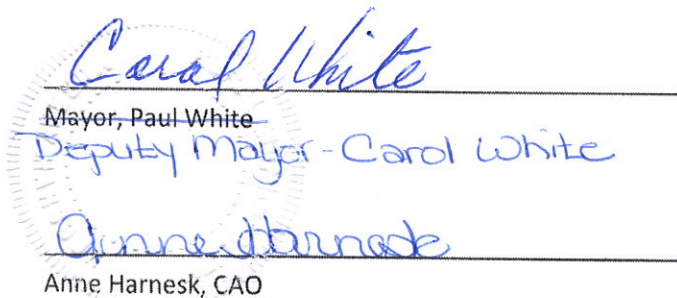 Carol White
Mayor, Paul White
Deputy Mayor - Carol White
Anne Harnesk
Anne Harnesk, CAO